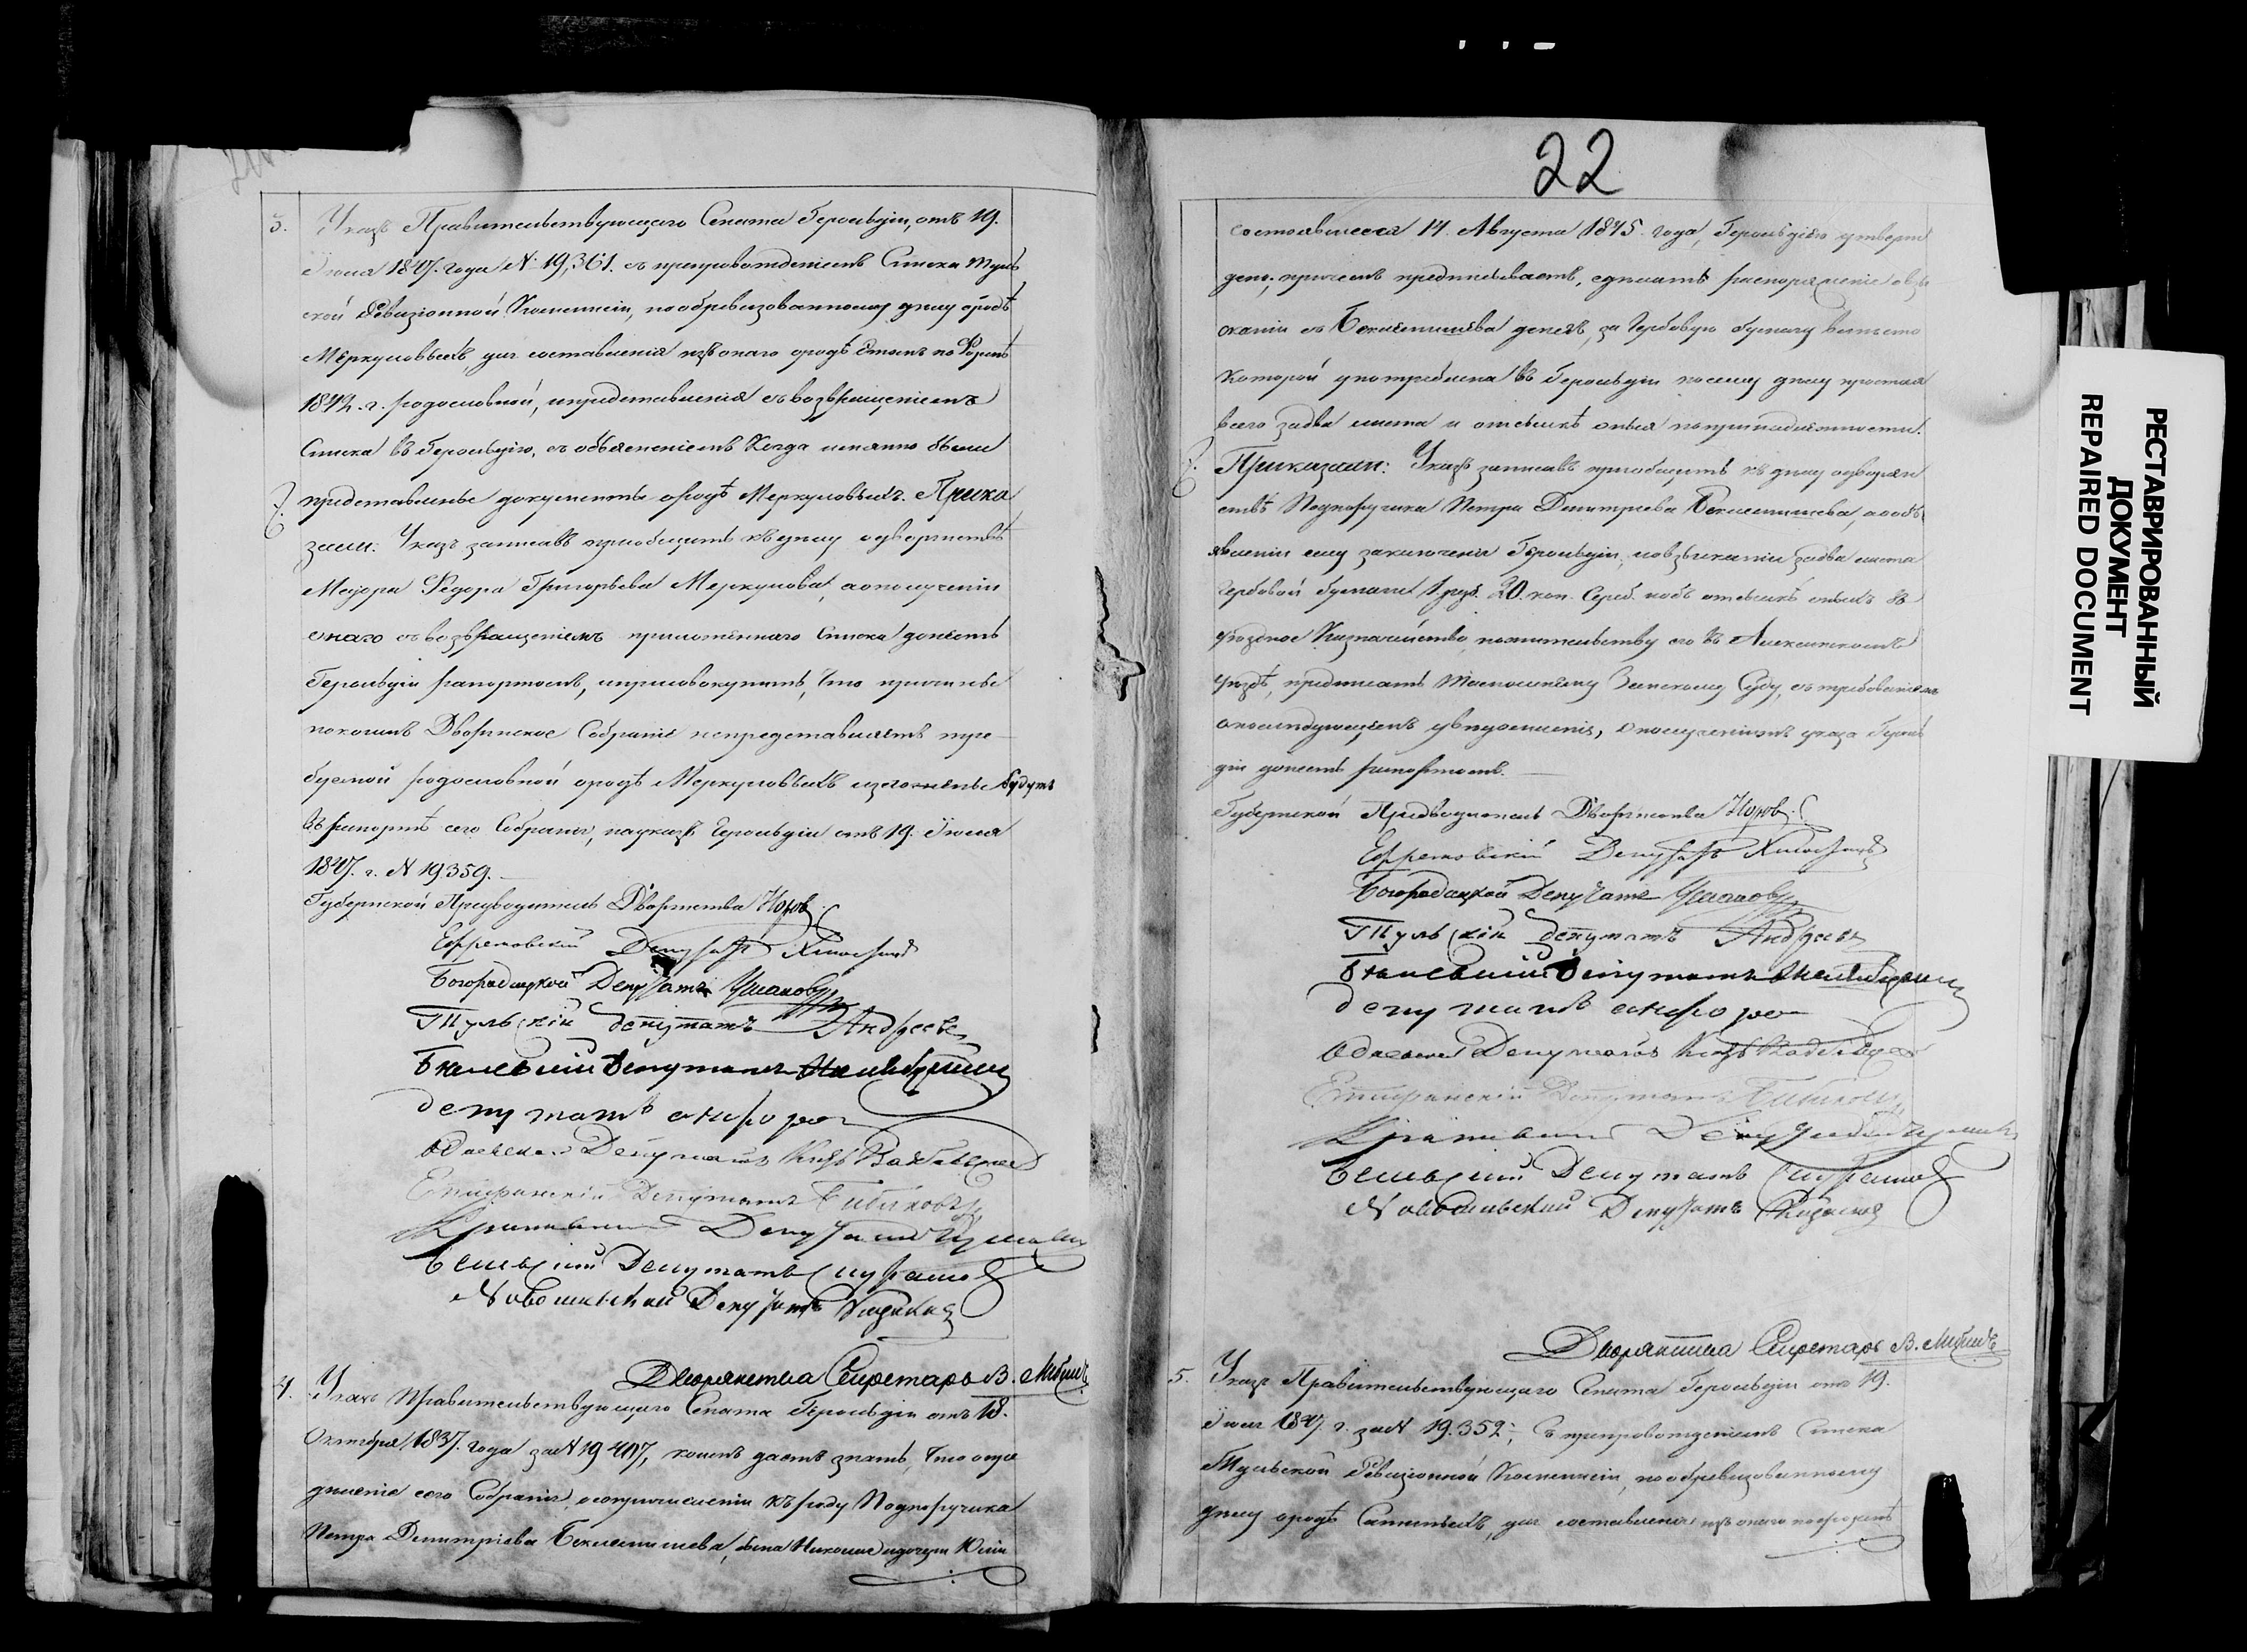 3. Указъ Правительствующаго Сената Герольдіи, отъ 19.
Іюля 1847. года № 19,361. съ препровожденіемъ Списка Туль
ской Ревизіонной Коммисіи, по обревизованному дѣлу о родѣ
Меркуловыхъ, для составленія изъ онаго о родѣ этомъ по Формѣ
1842. г. родословной, и представленія съ возвращеніемъ
Списка въ Герольдію, съ объясненіемъ Когда именно были
представлены документы о родѣ Меркуловыхъ. Прика
зали: Указъ записавъ пріобщить къ дѣлу о дворянствѣ
Маіора Федора Григорьева Меркулова, а о полученіи
онаго съ возвращеніемъ приложеннаго Списка донесть
Герольдіи рапортомъ, и присовокупить, Что причины
по коимъ Дворянское Собраніе не представляетъ тре
буемой родословной о родѣ Меркуловыхъ изложены будутъ
въ рапортѣ сего Собранія, на указъ Герольдіи отъ 19. Іюля
1847. г. № 19359.
Губернской Предводитель Дворянства Норов
Ефремовскій Депутатъ
Богородицкой Депутатъ Ушаковъ
Тульскій депутатъ Андреевъ
Бѣлевскій Депутатъ
депутатъ
Одоевской Депутатъ Князь
Епифанскій Депутатъ Бибиковъ
Крапивенскій Депутатъ
Депутатъ
Новосильскій Депутатъ
Дворянства Секретарь В.
4. Указъ Правительствующаго Сената Герольдіи отъ 18.
Октября 1837. года за № 19407, коимъ даетъ знать, Что опре
дѣленіе сего Собранія, о сопричисленіи къ роду Подпоручика
Петра Дмитріева Беклемишева, сына Николая и дочери Юліи
22
состоявшееся 14. Августа 1845. года, Герольдіею утверж
дено; причемъ предписываетъ, сдѣлать распоряженіе о взы
сканіи съ Беклемишева денегъ, за гербовую бумагу вмѣсто
которой употреблена въ Герольдіи по сему дѣлу простая
всего за два листа и отсылкѣ оныя по принадлежности.
Приказали: Указъ записавъ пріобщить къ дѣлу о дворян
ствѣ Подпоручика Петра Дмитріева Беклемишева, а объ
явленіи ему заключенія Герольдіи, и о взысканіи за два листа
гербовой бумаги 1 руб. 20. коп. Сереб. и объ отсылкѣ оныхъ въ
уѣздное Казначейство, по жительству его въ Алексинскомъ
уѣздѣ, предписать тамошнему Земскому Суду, съ требованіемъ
о послѣдующемъ увѣдомленія, о полученіи указа Героль
діи донесть рапортомъ.
Губернской Предводитель Дворянства Норов
Ефремовскій Депутатъ
Богородицкой Депутатъ Ушаковъ
Тульскій депутатъ Андреевъ
Бѣлевскій Депутатъ
депутатъ
Одоевской Депутатъ Князь
Епифанскій Депутатъ Бибиковъ
Крапивенскій Депутатъ
Депутатъ
Новосильскій Депутатъ
Дворянства Секретарь В.
5. Указъ Правительствующаго Сената Герольдіи отъ 19.
Іюля 1847. г. за № 19.352; съ препровожденіемъ Списка
Тульской Ревизіонной Коммисіи, по обревизованному
дѣлу о родѣ для составленія изъ онаго по формѣ
РЕСТАВРИРОВАННЫЙ
ДОКУМЕНТ
REPAIRED DOCUMENT